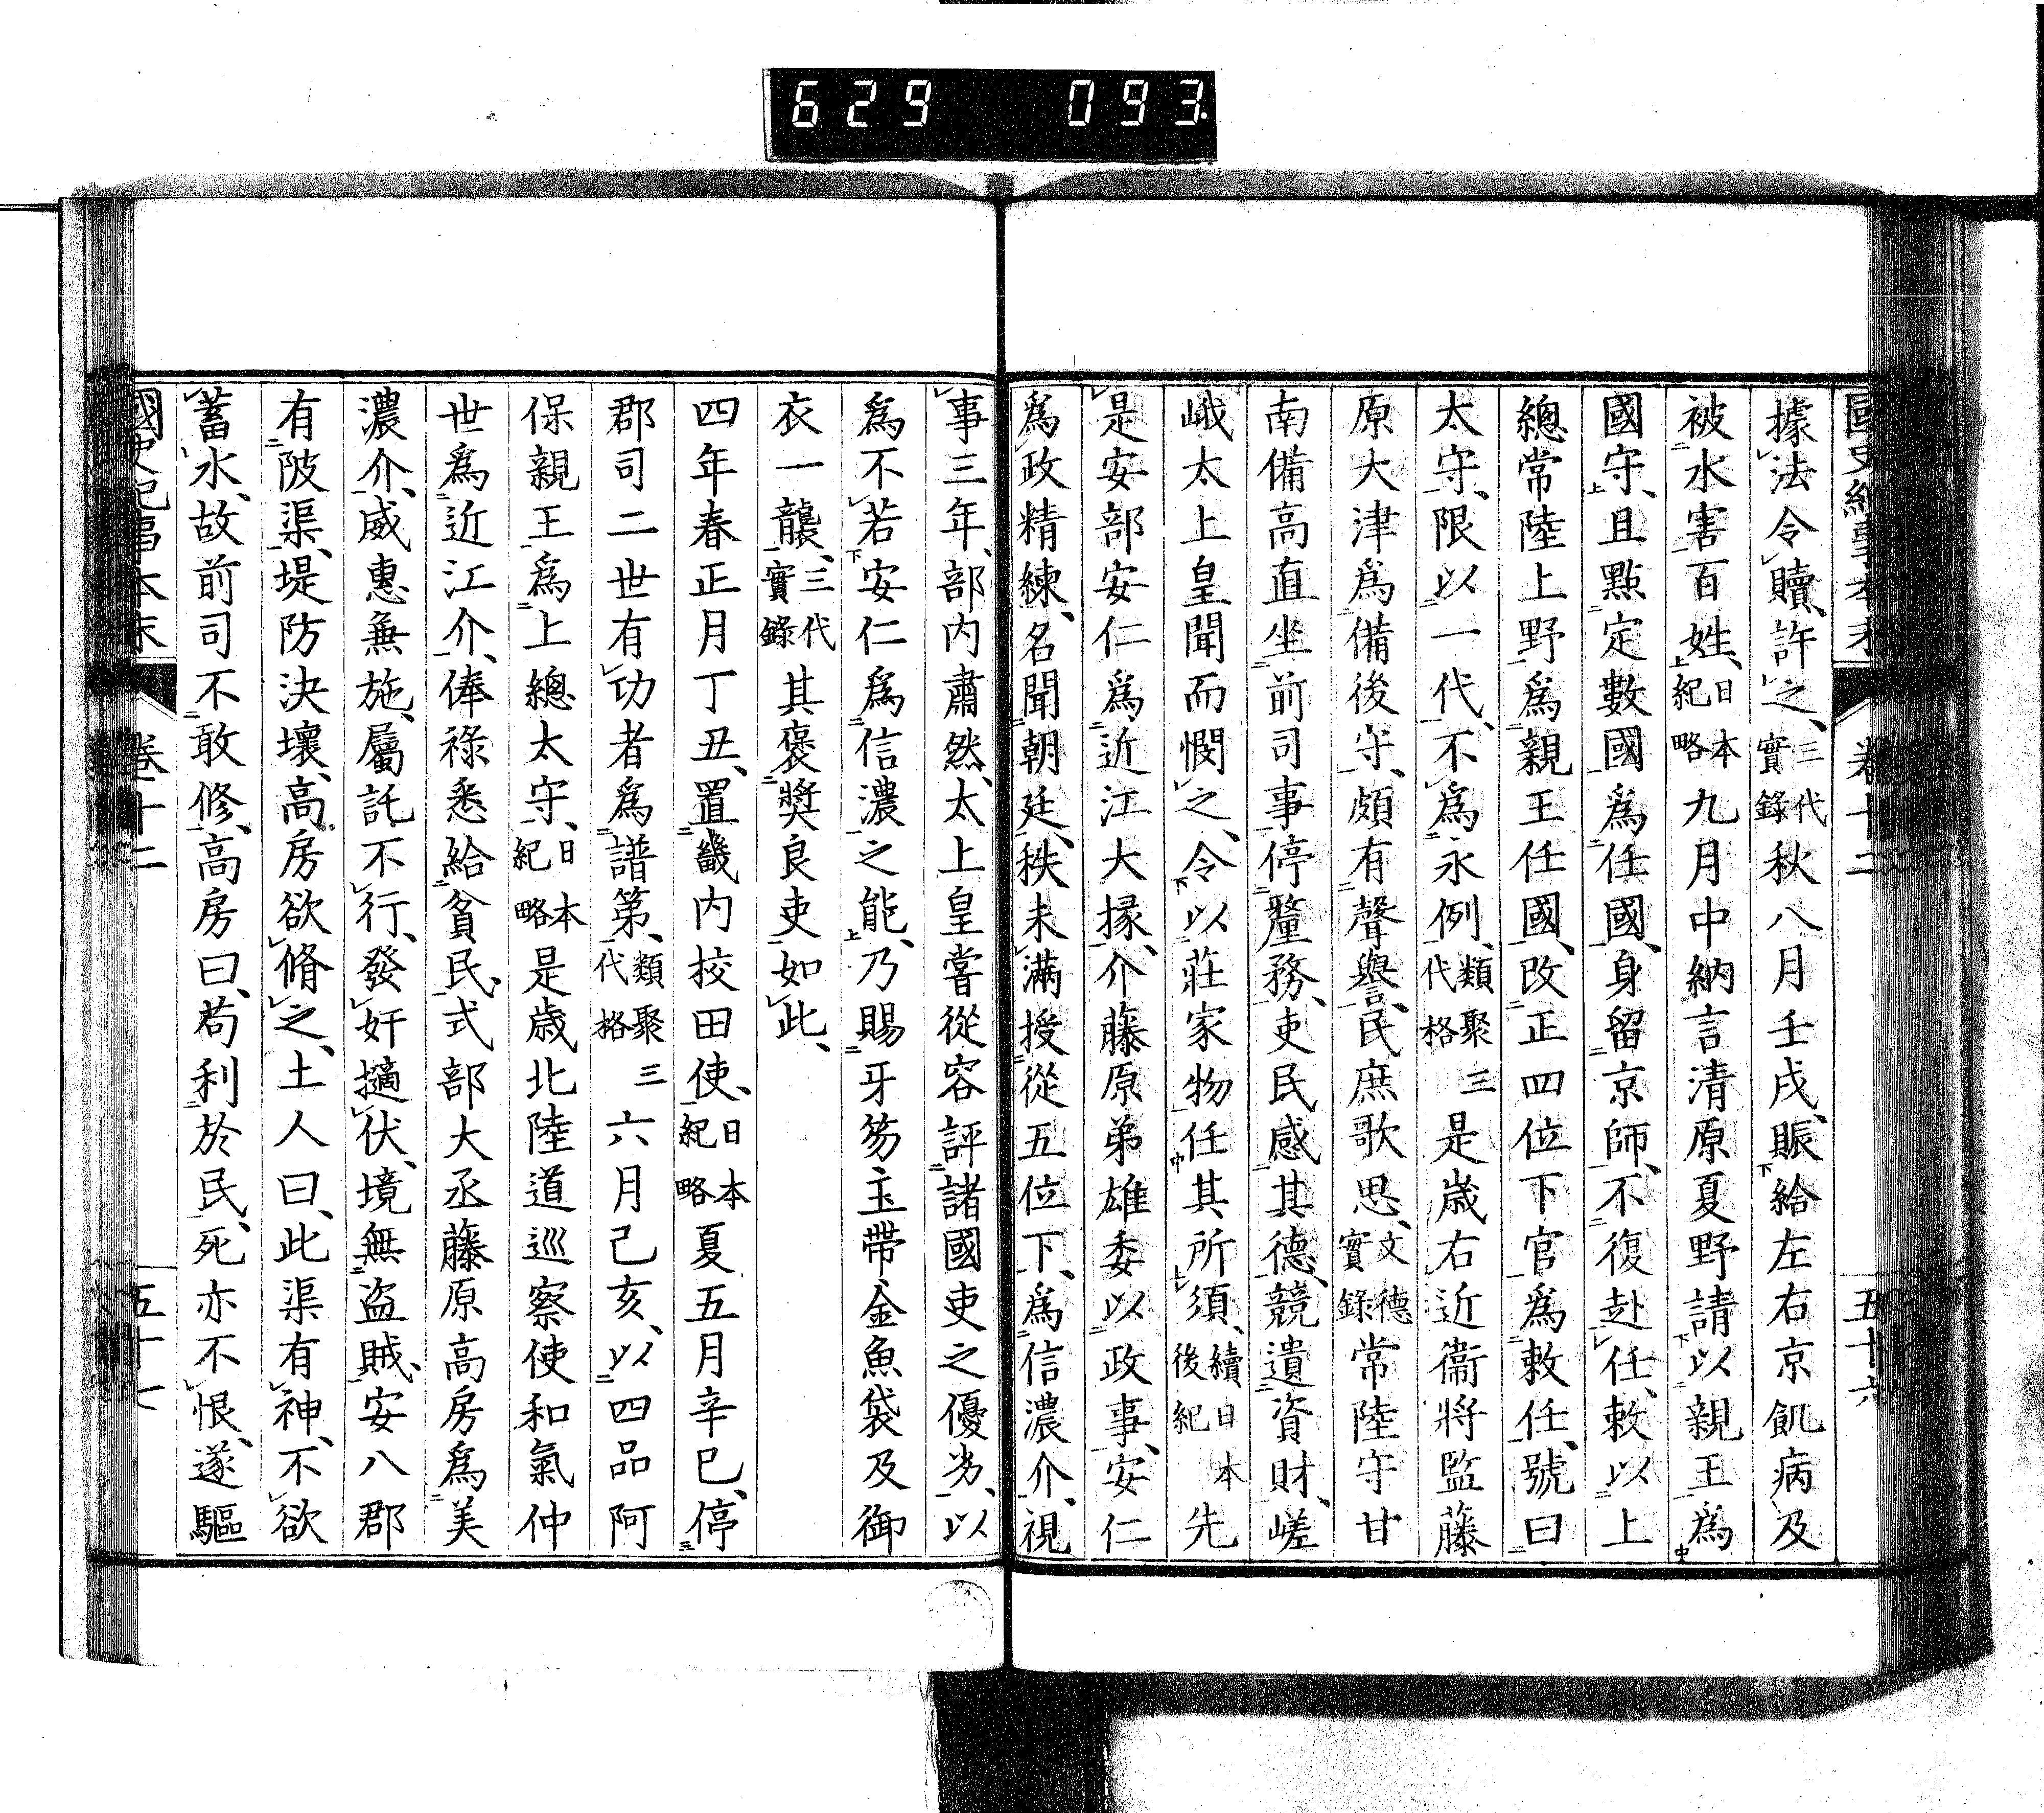 629 093
國史紀事本末 卷十二 五十六
據法令贖、許之、三代實錄秋八月壬戌、賑給左右京飢病及
被水害百姓、日本紀略九月中納言清原夏野請以親王爲
國守、且點定數國爲任國、身留京師、不復赴任、敕以上
總常陸上野爲親王任國、改正四位下官爲敕任、號曰
太守、限以一代、不爲永例、類聚三代格是歲右近衞將監藤
原大津爲備後守、頗有聲譽、民庶歌思、文德實錄常陸守甘
南備高直坐前司事停釐務、吏民感其德、競遺資財、嵯
峨太上皇聞而憫之、令以莊家物任其所須、續日本後紀先
是安部安仁爲近江大掾、介藤原弟雄委以政事、安仁
爲政精練、名聞朝廷、秩未滿授從五位下、爲信濃介、視
事三年、部内肅然、太上皇嘗從容評諸國吏之優劣、以
爲不若安仁爲信濃之能、乃賜牙笏玉帶金魚袋及御
衣一襲、三代實錄其褒奬良吏如此、
四年春正月丁丑、置畿内挍田使、日本紀略夏五月辛巳、停
郡司二世有功者爲譜第、類聚三代格六月己亥、以四品阿
保親王爲上總太守、日本紀略是歲北陸道巡察使和氣仲
世爲近江介、俸祿悉給貧民、式部大丞藤原高房爲美
濃介、威惠兼施、屬託不行、發奸擿伏、境無盜賊、安八郡
有陂渠、堤防決壞、高房欲脩之、土人曰、此渠有神、不欲
蓄水、故前司不敢修、高房曰、苟利於民、死亦不恨、遂驅
國史紀事本末 卷十二 五十七